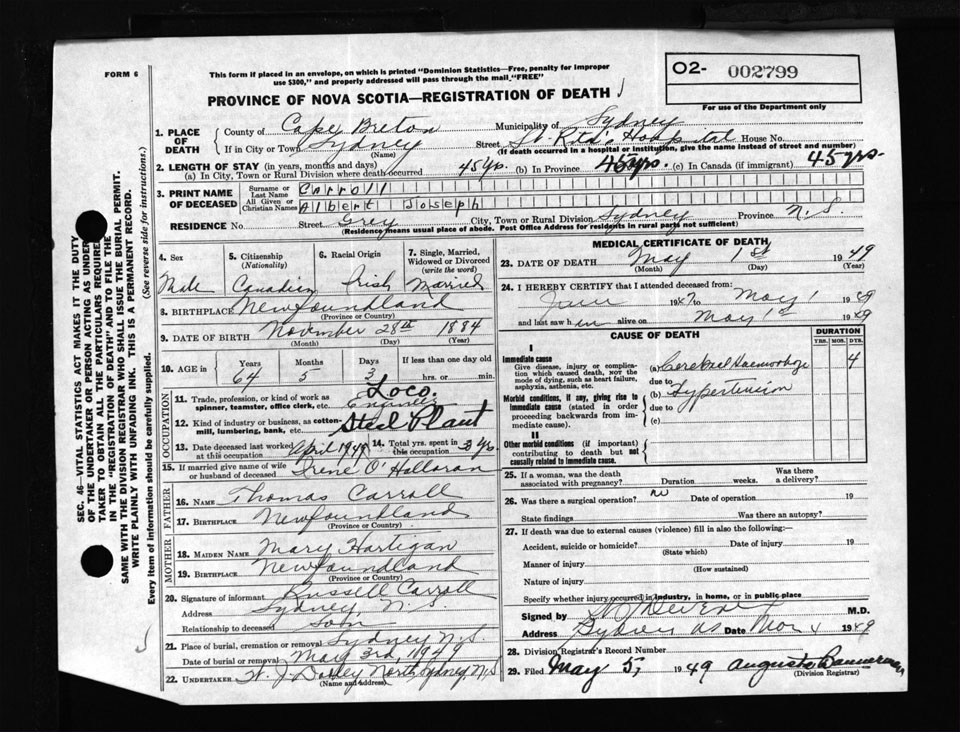 FORM 6
This form if placed in an envelope, on which is printed "Dominion Statistics—Free, penalty for improper
use $300," and properly addressed will pass through the mail "FREE"
PROVINCE OF NOVA SCOTIA—REGISTRATION OF DEATH
02- 002799
For use of the Department only
1. PLACE OF DEATH
County of Cape Breton Municipality of Sydney
If in City or Town Sydney (Name) Street St. Rita's Hospital House No.
(If death occurred in a hospital or institution, give the name instead of street and number)
2. LENGTH OF STAY (in years, months and days)
(a) In City, Town or Rural Division where death occurred 45 yrs. (b) In Province 45 yrs. (c) In Canada (if immigrant) 45 yrs.
3. PRINT NAME OF DECEASED
Surname or Last Name Carroll
All Given or Christian Names Albert Joseph
RESIDENCE No. Street Grey City, Town or Rural Division Sydney Province N.S.
(Residence means usual place of abode. Post Office Address for residents in rural parts not sufficient)
4. Sex Male
5. Citizenship (Nationality) Canadian
6. Racial Origin Irish
7. Single, Married, Widowed or Divorced (write the word) Married
8. BIRTHPLACE Newfoundland
(Province or Country)
9. DATE OF BIRTH November 28th 1884
(Month) (Day) (Year)
10. AGE in Years 64 Months 5 Days 3 If less than one day old hrs. or min.
OCCUPATION
11. Trade, profession, or kind of work as spinner, teamster, office clerk, etc. Loco. Engineer
12. Kind of industry or business, as cotton-mill, lumbering, bank, etc. Steel Plant
13. Date deceased last worked at this occupation April 1949
14. Total yrs. spent in this occupation 3 yrs
15. If married give name of wife or husband of deceased Irene O'Halloran
FATHER
16. NAME Thomas Carroll
17. BIRTHPLACE Newfoundland
(Province or Country)
MOTHER
18. MAIDEN NAME Mary Hartigan
19. BIRTHPLACE Newfoundland
(Province or Country)
20. Signature of informant Russell Carroll
Address Sydney N.S.
Relationship to deceased Son
21. Place of burial, cremation or removal Sydney N.S.
Date of burial or removal May 3rd, 1949
22. UNDERTAKER W. J. Dooley North Sydney N.S
(Name and address)
MEDICAL CERTIFICATE OF DEATH
23. DATE OF DEATH May 1st 1949
(Month) (Day) (Year)
24. I HEREBY CERTIFY that I attended deceased from:
June 1947 to May 1 1949
and last saw him alive on May 1st 1949
CAUSE OF DEATH
DURATION
YRS. MOS. DYS.
I
Immediate cause
Give disease, injury or complication which caused death, NOT the mode of dying, such as heart failure, asphyxia, asthenia, etc.
(a) Cerebral Haemorrhage 4
due to
Morbid conditions, if any, giving rise to immediate cause (stated in order proceeding backwards from immediate cause).
(b) Hypertension
due to
(c)
II
Other morbid conditions (if important) contributing to death but not causally related to immediate cause.
25. If a woman, was the death associated with pregnancy? Duration weeks. Was there a delivery?
26. Was there a surgical operation? no Date of operation 19
State findings Was there an autopsy?
27. If death was due to external causes (violence) fill in also the following:—
Accident, suicide or homicide? Date of injury 19
(State which)
Manner of injury
(How sustained)
Nature of injury
Specify whether injury occurred in industry, in home, or in public place
Signed by M.D.
Address Sydney NS Date 1949
28. Division Registrar's Record Number
29. Filed May 5, 1949 Augusta Bannerman
(Division Registrar)
SEC. 46—VITAL STATISTICS ACT MAKES IT THE DUTY
OF THE UNDERTAKER OR PERSON ACTING AS UNDERTAKER
TO OBTAIN ALL THE PARTICULARS REQUIRED
IN THE "REGISTRATION OF DEATH" AND TO FILE THE
SAME WITH THE DIVISION REGISTRAR WHO SHALL ISSUE THE BURIAL PERMIT.
WRITE PLAINLY WITH UNFADING INK. THIS IS A PERMANENT RECORD.
Every item of information should be carefully supplied. (See reverse side for instructions.)